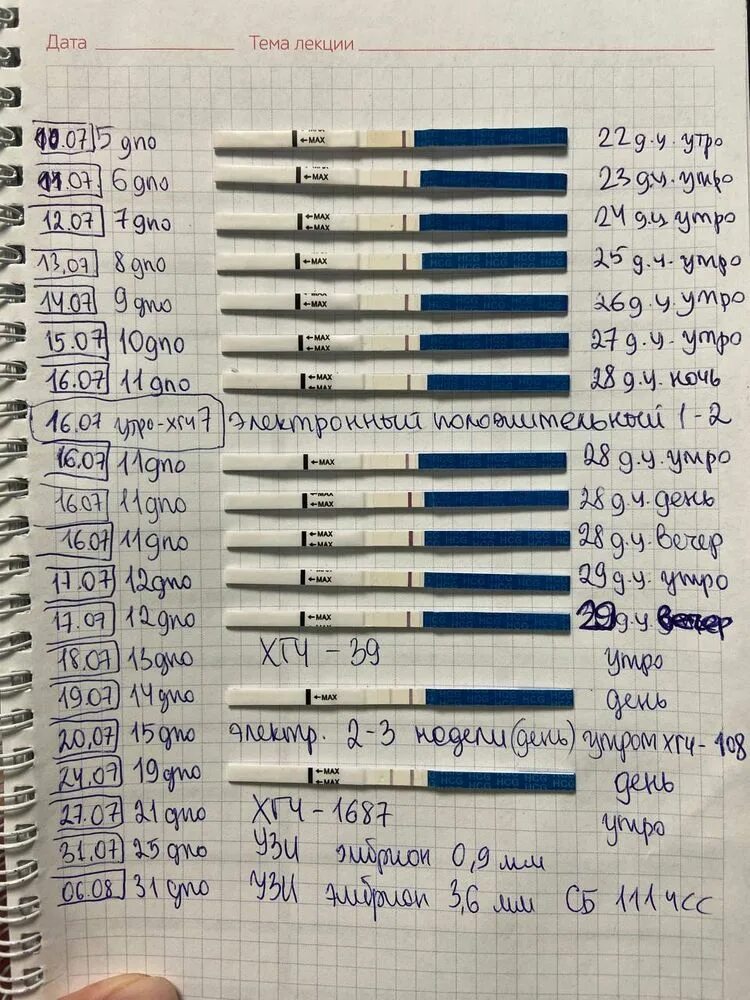 Дата Тема лекции
10.07 5 дпо ←MAX 22 д.ц. утро
11.07 6 дпо ←MAX 23 д.ц. утро
12.07 7 дпо ←MAX ←MAX 24 д.ц. утро
13.07 8 дпо ←MAX HCG HCG HCG HCG 25 д.ц. утро
14.07 9 дпо ←MAX 26 д.ц. утро
15.07 10 дпо ←MAX ←MAX 27 д.ц. утро
16.07 11 дпо ←MAX ←MAX 28 д.ц. ночь
16.07 утро-ХГЧ 7 электронный положительный 1-2
16.07 11 дпо ←MAX 28 д.ц. утро
16.07 11 дпо ←MAX 28 д.ц. день
16.07 11 дпо ←MAX ←MAX HCG HCG HCG 28 д.ц. вечер
17.07 12 дпо ←MAX ←MAX 29 д.ц. утро
17.07 12 дпо ←MAX 29 д.ц. вечер
18.07 13 дпо ХГЧ - 39 утро
19.07 14 дпо ←MAX день
20.07 15 дпо электр. 2-3 недели (день) утром ХГЧ - 108
24.07 19 дпо ←MAX ←MAX HCG HCG HCG день
27.07 21 дпо ХГЧ - 1687 утро
31.07 25 дпо УЗИ эмбрион 0,9 мм
06.08 31 дпо УЗИ эмбрион 3,6 мм СБ 111 чсс